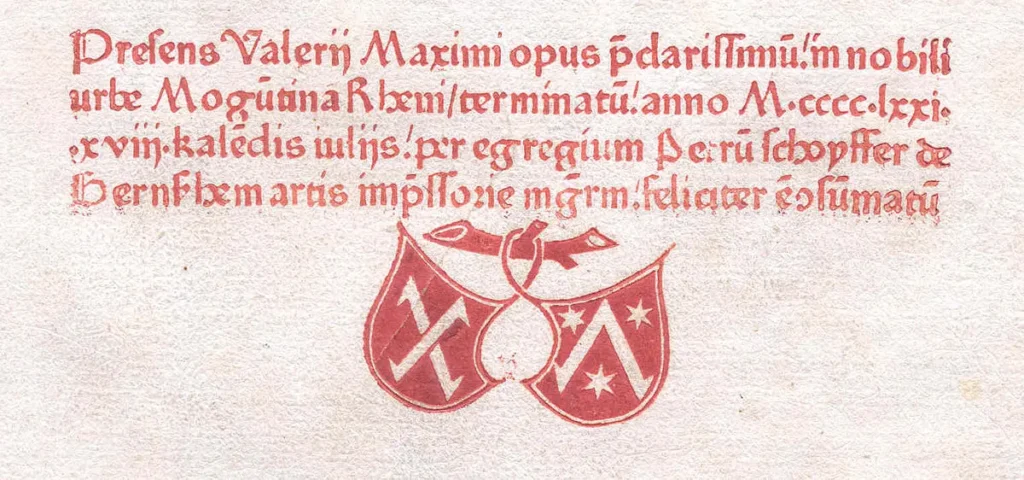 Presens Valerii Maximi opus p̄clarissimū! in nobili
urbe Mogūtina Rheni/terminatū! anno M·cccc·lxxi·
·xviij·kalēdis iulijs! per egregium Petrū schoyffer de
Gernsshem artis imp̄ssorie mḡrm! feliciter ē ɔsūmatū